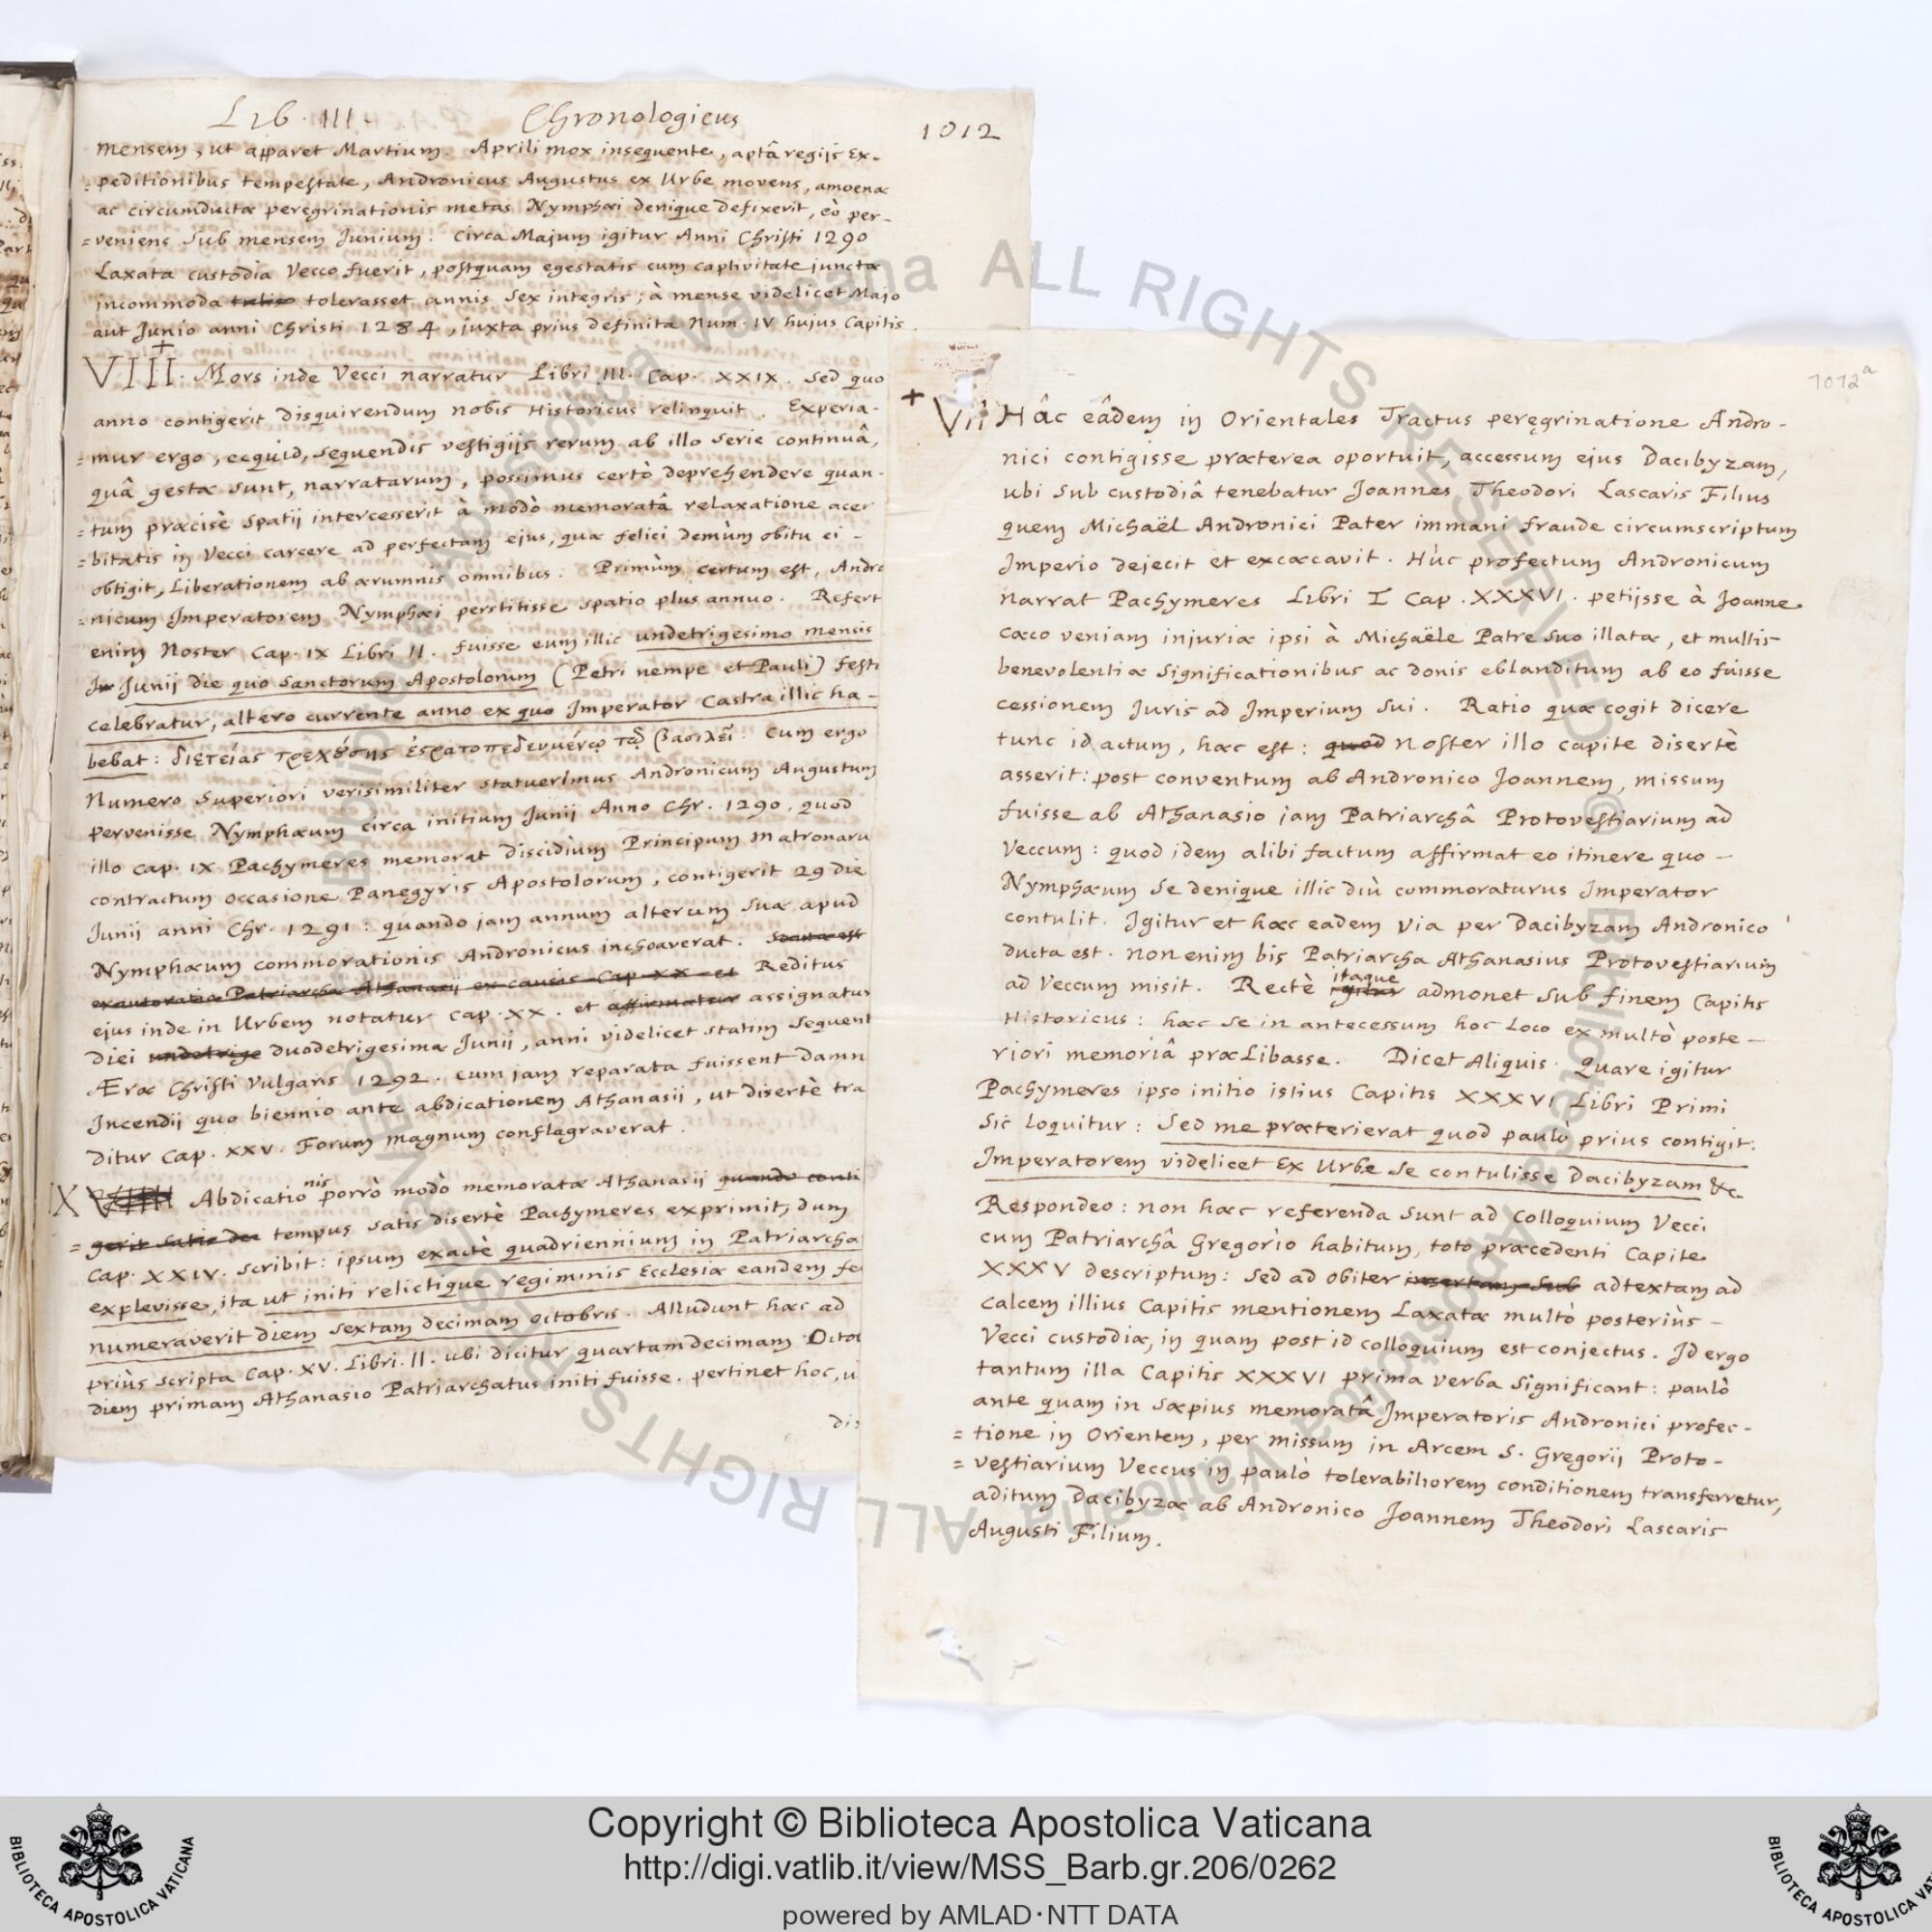 Lib. III. Chronologicus
1012
mensem, ut apparet Martium. Aprili mox insequente, aptâ regijs Ex-
=peditionibus tempestate, Andronicus Augustus ex Urbe movens, amoenæ
ac circumductæ peregrinationis metas Nymphæi denique defixerit, eò per-
=veniens sub mensem Junium. Circa Majum igitur Anni Christi 1290
Laxata custodia Vecco fuerit, postquam egestatis cum captivitate junctæ
incommoda tolerasset annis sex integris; à mense videlicet Majo
aut Junio anni Christi 1284, juxta prius definita Num. IV hujus Capitis.
+
VIII: Mors inde Vecci narratur Libri III. Cap. XXIX. Sed quo
anno contigerit disquirendum nobis Historicus relinquit. Experia-
=mur ergo, ecquid, sequendis vestigijs rerum ab illo serie continuâ,
quâ gestæ sunt, narratarum, possimus certò deprehendere quan-
=tum præcisè spatij intercesserit à modò memoratâ relaxatione acer
=bitatis in Vecci carcere ad perfectam ejus, quæ felici demùm obitu ei-
obtigit, Liberationem ab ærumnis omnibus. Primùm certum est, Andro
=nicum Imperatorem Nymphæi perstitisse spatio plus annuo. Refert
enim Noster Cap. IX Libri II. fuisse eum illic undetrigesimo mensis
Junij die quo Sanctorum Apostolorum (Petri nempe et Pauli) festi
celebratur, altero currente anno ex quo Imperator Castra illic ha-
bebat: διετείας τρεχούσης ἐστρατοπεδευμένῳ τῷ βασιλεῖ. Cum ergo
Numero Superiori verisimiliter statuerimus Andronicum Augustum
pervenisse Nymphæum circa initium Junij Anno Chr. 1290. quod
illo cap. IX Pachymeres memorat discidium Principum Matronaru
contractum occasione Panegyris Apostolorum, contigerit 29 die
Junij anni Chr. 1291: quando jam annum alterum suæ apud
Nymphæum commorationis Andronicus inchoaverat. Secuta est
exautoratio Patriarchæ Athanasij ex causis Cap XX et Reditus
ejus inde in Urbem notatur cap. XX. et affirmatur assignatur
diei undetrige duodetrigesimæ Junij, anni videlicet statim sequent
Æræ Christi Vulgaris 1292. cum jam reparata fuissent damn
Incendij quo biennio ante abdicationem Athanasii, ut disertè tra
ditur Cap. XXV. Forum magnum conflagraverat.
IX Abdicationis porrò modò memoratæ Athanasij quando conti
=gerit satis tempus satis disertè Pachymeres exprimit, dum
Cap. XXIV. scribit: ipsum exactè quadriennium in Patriarcha
explevisse, ita ut initi relictique regiminis Ecclesiæ eandem fe
numeraverit diem sextam decimam Octobris. Alludunt hæc ad
priùs scripta Cap. XV. Libri. II. ubi dicitur quartamdecimam Octo
diem primam Athanasio Patriarchatus initi fuisse. pertinet hoc, u
di
1012a
+
VII Hâc eâdem in Orientales Tractus peregrinatione Andro-
nici contigisse præterea oportuit, accessum ejus Dacibyzam,
ubi sub custodiâ tenebatur Joannes Theodori Lascaris Filius
quem Michaël Andronici Pater immani fraude circumscriptum
Imperio dejecit et excæcavit. Hùc profectum Andronicum
narrat Pachymeres Libri I Cap. XXXVI. petijsse à Joanne
cæco veniam injuriæ ipsi à Michaële Patre suo illatæ, et multis
benevolentiæ significationibus ac donis eblanditum ab eo fuisse
cessionem Juris ad Imperium sui. Ratio quæ cogit dicere
tunc id actum, hæc est: quod Noster illo capite disertè
asserit: post conventum ab Andronico Joannem, missum
fuisse ab Athanasio jam Patriarchâ Protovestiarium ad
Veccum: quod idem alibi factum affirmat eo itinere quo-
Nymphæum se denique illic diù commoraturus Imperator
contulit. Igitur et hæc eadem via per Dacibyzam Andronico
ducta est. non enim bis Patriarcha Athanasius Protovestiarium
ad Veccum misit. Rectè igitur itaque admonet sub finem Capitis
Historicus: hæc se in antecessum hoc loco ex multò poste-
riori memoriâ præLibasse. Dicet Aliquis. Quare igitur
Pachymeres ipso initio istius Capitis XXXVI Libri Primi
Sic loquitur: Sed me præterierat quod paulò prius contigit:
Imperatorem videlicet Ex Urbe se contulisse Dacibyzam &c.
Respondeo: non hæc referenda sunt ad Colloquium Vecci
cum Patriarchâ Gregorio habitum, toto præcedenti Capite
XXXV descriptum: sed ad obiter insertam sub adtextam ad
calcem illius Capitis mentionem Laxatæ multò posteriùs-
Vecci custodiæ, in quam post id colloquium est conjectus. Id ergo
tantum illa Capitis XXXVI prima verba significant: paulò
ante quam in sæpius memoratâ Imperatoris Andronici profec-
=tione in Orientem, per missum in Arcem S. Gregorij Proto-
=vestiarium Veccus in paulò tolerabiliorem conditionem transferretur,
aditum Dacibyzæ ab Andronico Joannem Theodori Lascaris
Augusti Filium.
Copyright © Biblioteca Apostolica Vaticana
http://digi.vatlib.it/view/MSS_Barb.gr.206/0262
powered by AMLAD·NTT DATA
BIBLIOTECA APOSTOLICA VATICANA
BIBLIOTECA APOSTOLICA VAT
ALL RIGHTS RESERVED © Biblioteca Apostolica Vaticana